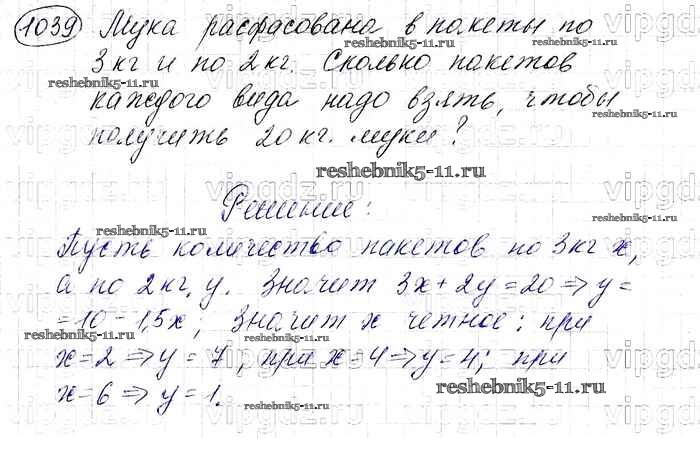 1039 Мука расфасована в пакеты по
3 кг и по 2 кг. Сколько пакетов
каждого вида надо взять, чтобы
получить 20 кг. муки?
Решение:
Пусть количество пакетов по 3 кг x,
а по 2 кг, y. Значит 3x + 2y = 20 => y =
= 10 - 1,5x, Значит x четное: при
x = 2 => y = 7, при x = 4 => y = 4; при
x = 6 => y = 1.
reshebnik5-11.ru
reshebnik5-11.ru
reshebnik5-11.ru
reshebnik5-11.ru
reshebnik5-11.ru
reshebnik5-11.ru
reshebnik5-11.ru
reshebnik5-11.ru
reshebnik5-11.ru